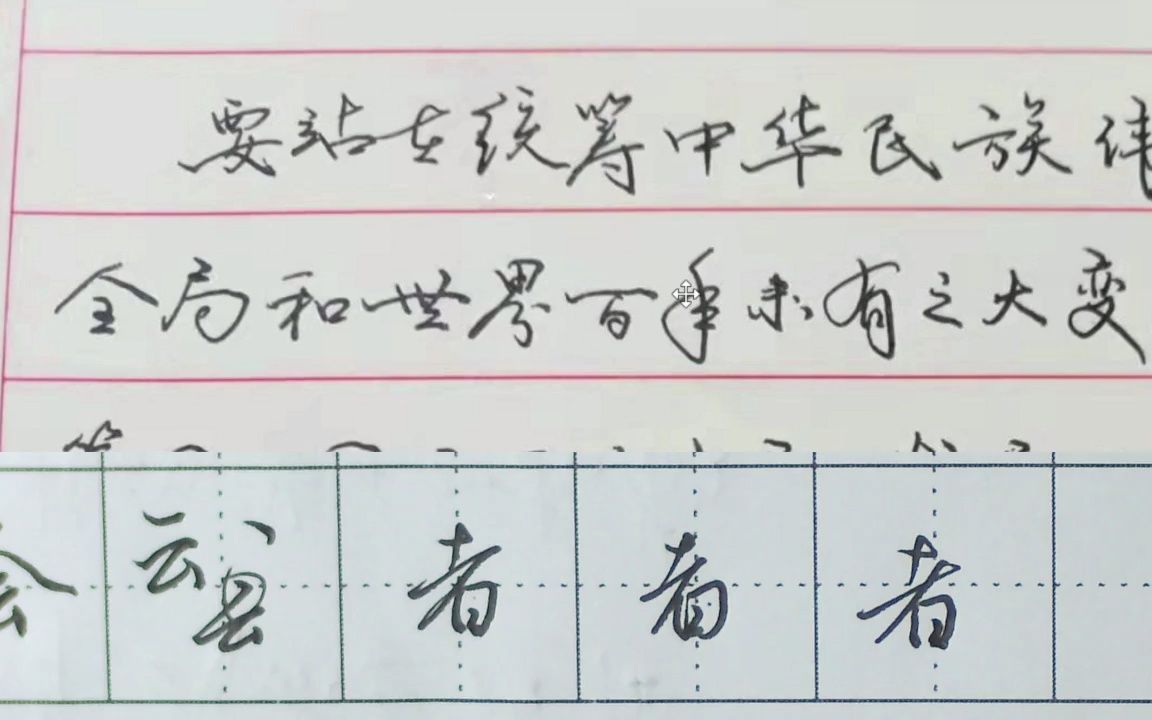 要站在统筹中华民族伟
全局和世界百年未有之大变
会 云 县 者 者 者